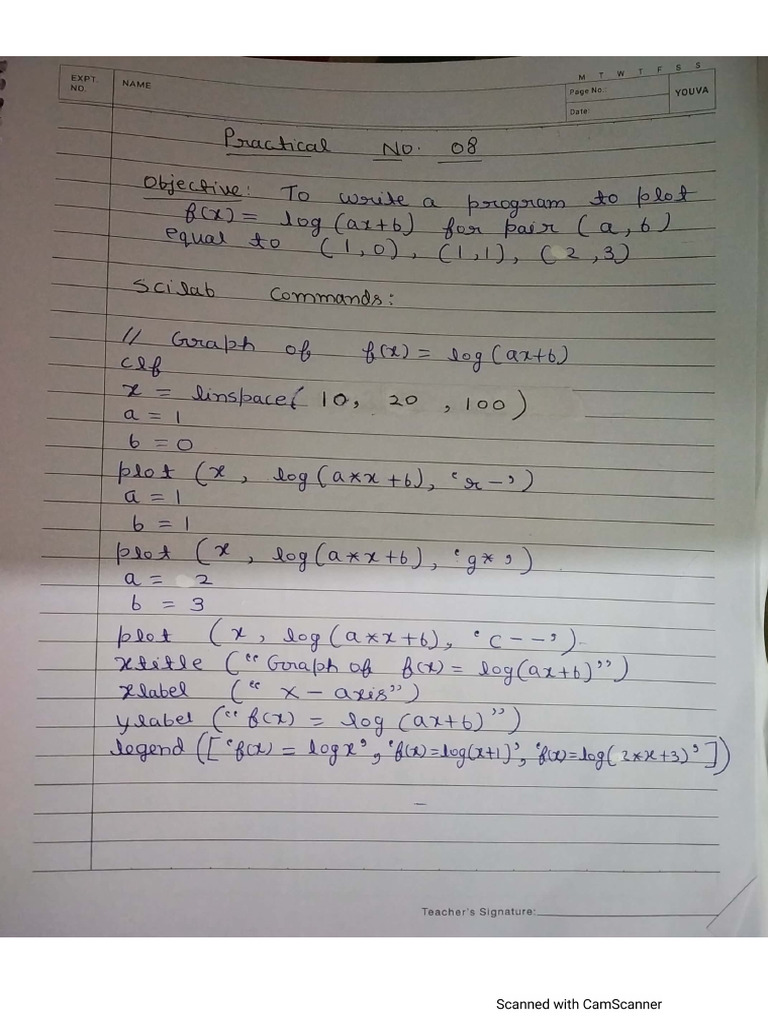 EXPT. NO.
NAME
M T W T F S S
Page No.:
Date:
YOUVA
Practical No. 08
Objective: To write a program to plot
f(x) = log(ax+b) for pair (a, b)
equal to (1,0), (1,1), (2,3)
Scilab Commands:
// Graph of f(x) = log(ax+b)
clf
x = linspace( 10, 20 , 100 )
a = 1
b = 0
plot (x, log(a*x+b), 'r-')
a = 1
b = 1
plot (x, log(a*x+b), 'g*')
a = 2
b = 3
plot (x, log(a*x+b), 'c--')
xtitle ("Graph of f(x) = log(ax+b)")
xlabel ("x-axis")
ylabel ("f(x) = log (ax+b)")
legend (['f(x) = logx', 'f(x)=log(x+1)', 'f(x)=log(2*x+3)'])
Teacher's Signature:
Scanned with CamScanner